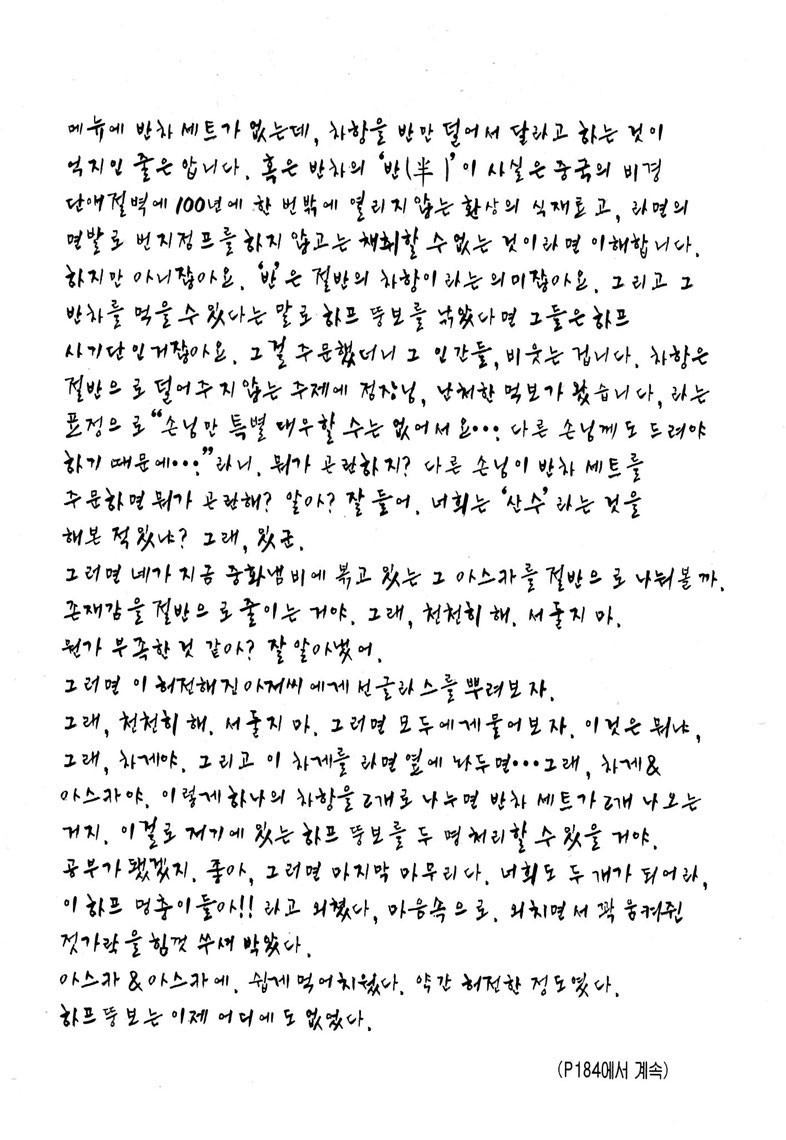 메뉴에 반차 세트가 없는데, 차항을 반만 덜어서 달라고 하는 것이
억지인 줄은 압니다. 혹은 반차의 '반(半)'이 사실은 중국의 비경
단애절벽에 100년에 한 번밖에 열리지 않는 환상의 식재료고, 라면의
면발로 번지점프를 하지 않고는 채취할 수 없는 것이라면 이해합니다.
하지만 아니잖아요. '반'은 절반의 차항이라는 의미잖아요. 그리고 그
반차를 먹을 수 있다는 말로 하프 뚱보를 낚았다면 그들은 하프
사기단인거잖아요. 그걸 주문했더니 그 인간들, 비웃는 겁니다. 차항은
절반으로 덜어주지 않는 주제에 정장님, 난처한 먹보가 왔습니다, 라는
표정으로 "손님만 특별 대우할 수는 없어서요…. 다른 손님께도 드려야
하기 때문에…."라니. 뭐가 곤란하지? 다른 손님이 반차 세트를
주문하면 뭐가 곤란해? 알아? 잘 들어. 너희는 '산수'라는 것을
해본 적 있냐? 그래, 있군.
그러면 네가 지금 중화냄비에 볶고 있는 그 아스카를 절반으로 나눠볼까.
존재감을 절반으로 줄이는 거야. 그래, 천천히 해. 서둘지 마.
뭔가 부족한 것 같아? 잘 알아냈어.
그러면 이 허전해진 아저씨에게 선글라스를 뿌려보자.
그래, 천천히 해. 서둘지 마. 그러면 모두에게 물어보자. 이것은 뭐냐,
그래, 차게야. 그리고 이 차게를 라면 옆에 놔두면…그래, 차게&
아스카야. 이렇게 하나의 차항을 2개로 나누면 반차 세트가 2개 나오는
거지. 이걸로 저기에 있는 하프 뚱보를 두 명 처리할 수 있을 거야.
공부가 됐겠지. 좋아, 그러면 마지막 마무리다. 너희도 두 개가 되어라,
이 하프 멍충이들아!! 라고 외쳤다, 마음속으로. 외치면서 꽉 움켜쥔
젓가락을 힘껏 쑤셔 박았다.
아스카&아스카에. 쉽게 먹어치웠다. 약간 허전한 정도였다.
하프 뚱보는 이제 어디에도 없었다.
(P184에서 계속)